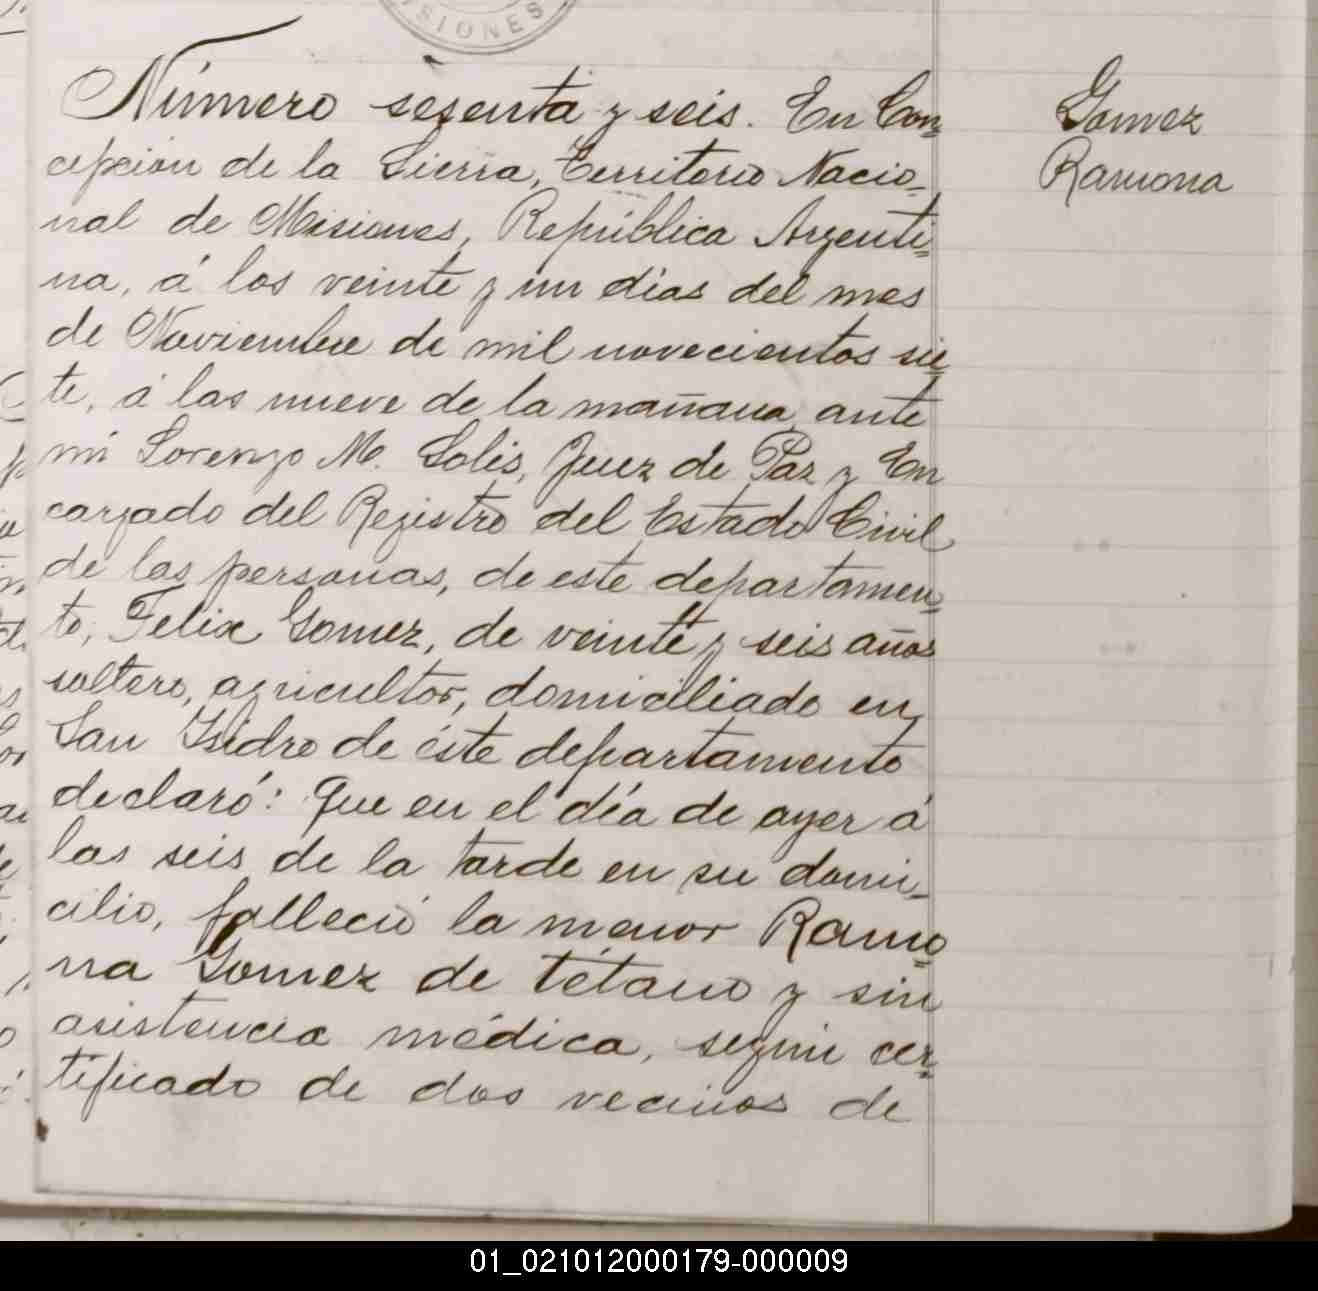 SIONES
Número sesenta y seis. En Con-
cepcion de la Sierra, Territorio Nacio-
nal de Misiones, República Argenti-
na, á los veinte y un dias del mes
de Noviembre de mil novecientos sie-
te, á las nueve de la mañana, ante
mi Lorenzo M. Solis, Juez de Paz y En
cargado del Registro del Estado Civil
de las personas, de este departamen-
to, Felix Gomez, de veinte y seis años
soltero, agricultor, domiciliado en
San Isidro de éste departamento
declaró: Que en el día de ayer á
las seis de la tarde en su domi-
cilio, falleció la menor Ramo-
na Gomez de tétano y sin
asistencia médica, segun cer-
tificado de dos vecinos de
Gomez
Ramona
01_021012000179-000009